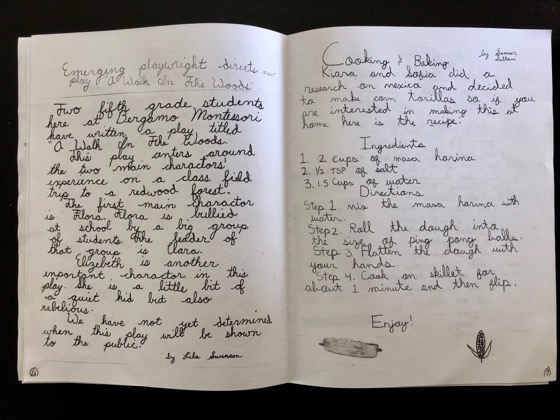 Emerging playwright directs new
play "A Walk In The Woods"
Two fifth grade students
here at Bergamo Montessori
have written a play titled
"A Walk In The Woods."
This play centers around
the two main charactors'
experience on a class field
trip to a redwood forest.
The first main charactor
is Flora. Flora is bullied
at school by a big group
of students. The leader of
that group is Clara.
Elizebeth is another
important charactor in this
play. She is a little bit of
a quiet kid but also
rebelious.
We have not yet determined
when this play will be shown
to the public.
by Lila Swenson
6
Cooking & Baking
by
Kiara and Sofia did a
research on mexico and decided
to make corn torillas so if you
are interested in making this at
home here is the recipe.
Ingredients
1. 2 cups of masa harina
2. 1/2 TSP of salt
3. 1.5 Cups of water
Directions
Step 1. mix the masa harina with
water.
Step 2. Roll the dough into
the size of ping pong balls.
Step 3. Flatten the dough with
your hands.
Step 4. Cook on skillet for
about 1 minute and then flip.
Enjoy!
7